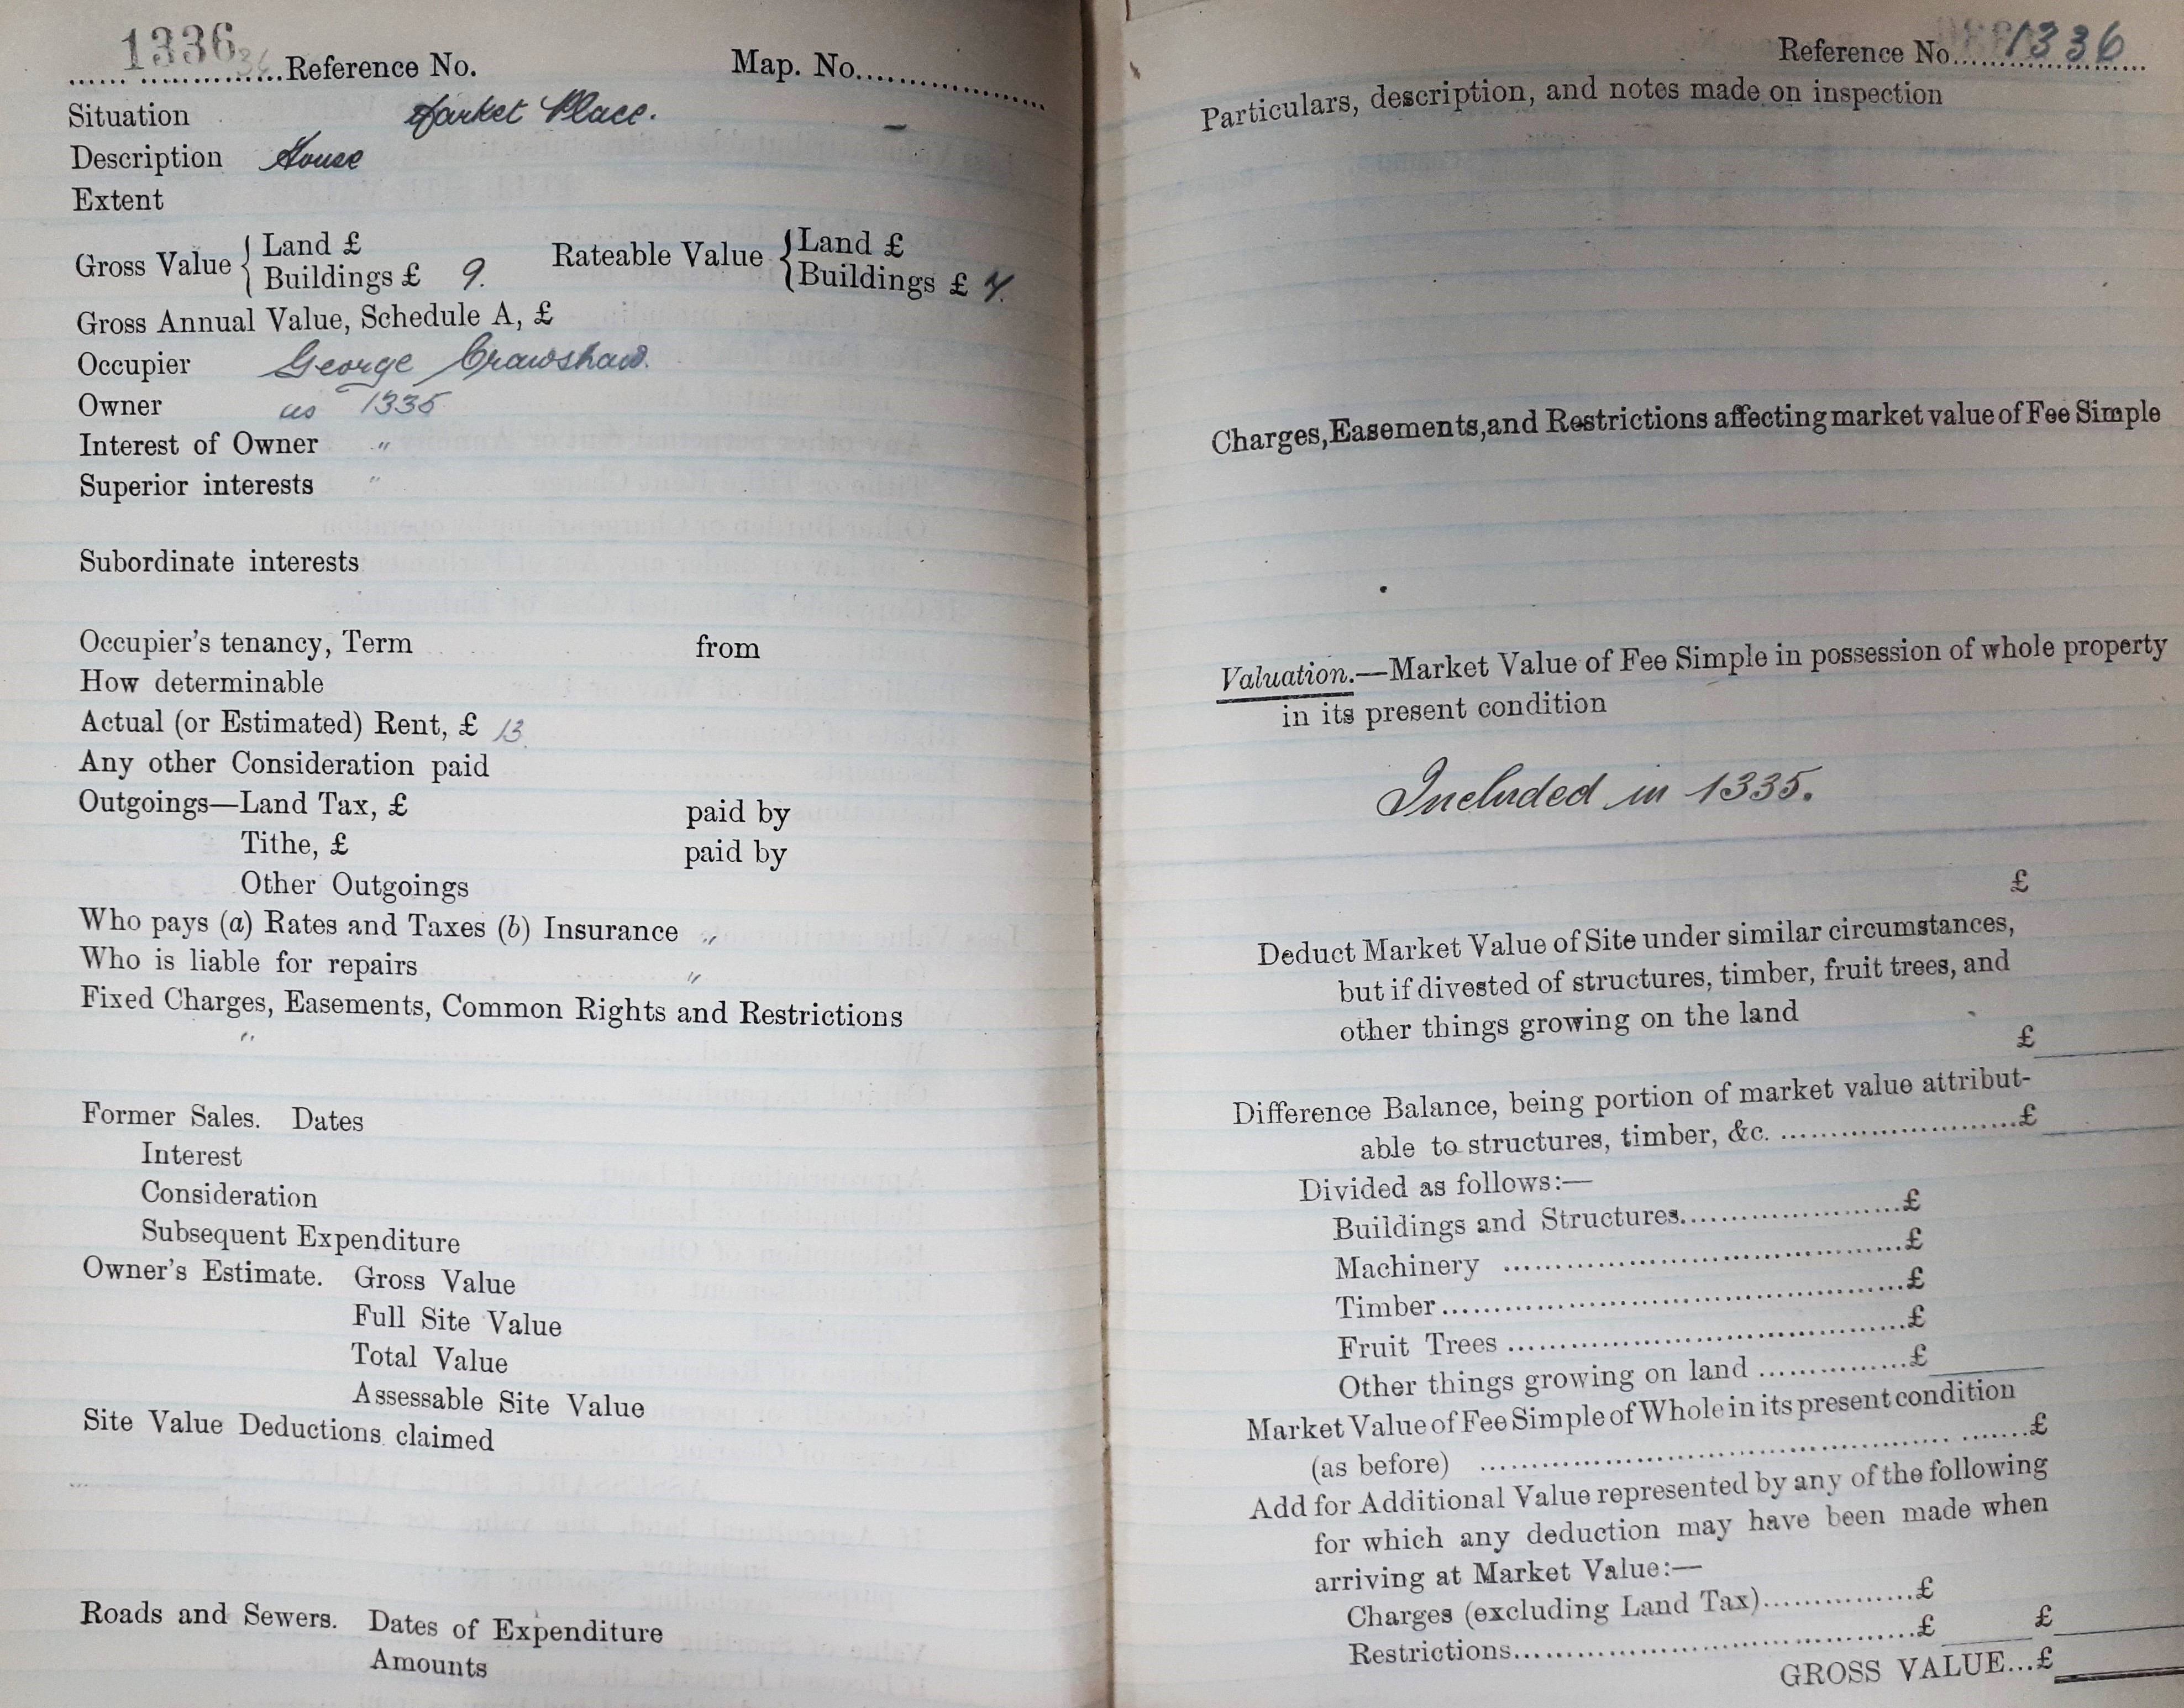 1336 Reference No. Map. No.
Situation Market Place.
Description House
Extent
Gross Value { Land £ Rateable Value { Land £
Buildings £ 9. Buildings £ 7.
Gross Annual Value, Schedule A, £
Occupier George Crawshaw.
Owner as 1335
Interest of Owner "
Superior interests "
Subordinate interests
Occupier's tenancy, Term from
How determinable
Actual (or Estimated) Rent, £ 13.
Any other Consideration paid
Outgoings—Land Tax, £ paid by
Tithe, £ paid by
Other Outgoings
Who pays (a) Rates and Taxes (b) Insurance "
Who is liable for repairs "
Fixed Charges, Easements, Common Rights and Restrictions
"
Former Sales. Dates
Interest
Consideration
Subsequent Expenditure
Owner's Estimate. Gross Value
Full Site Value
Total Value
Assessable Site Value
Site Value Deductions claimed
Roads and Sewers. Dates of Expenditure
Amounts
Reference No. 1336
Particulars, description, and notes made on inspection
Charges, Easements, and Restrictions affecting market value of Fee Simple
Valuation.—Market Value of Fee Simple in possession of whole property
in its present condition
Included in 1335.
£
Deduct Market Value of Site under similar circumstances,
but if divested of structures, timber, fruit trees, and
other things growing on the land
£
Difference Balance, being portion of market value attribut-
able to structures, timber, &c. £
Divided as follows:—
Buildings and Structures £
Machinery £
Timber £
Fruit Trees £
Other things growing on land £
Market Value of Fee Simple of Whole in its present condition
(as before) £
Add for Additional Value represented by any of the following
for which any deduction may have been made when
arriving at Market Value:—
Charges (excluding Land Tax) £
Restrictions £ £
GROSS VALUE...£